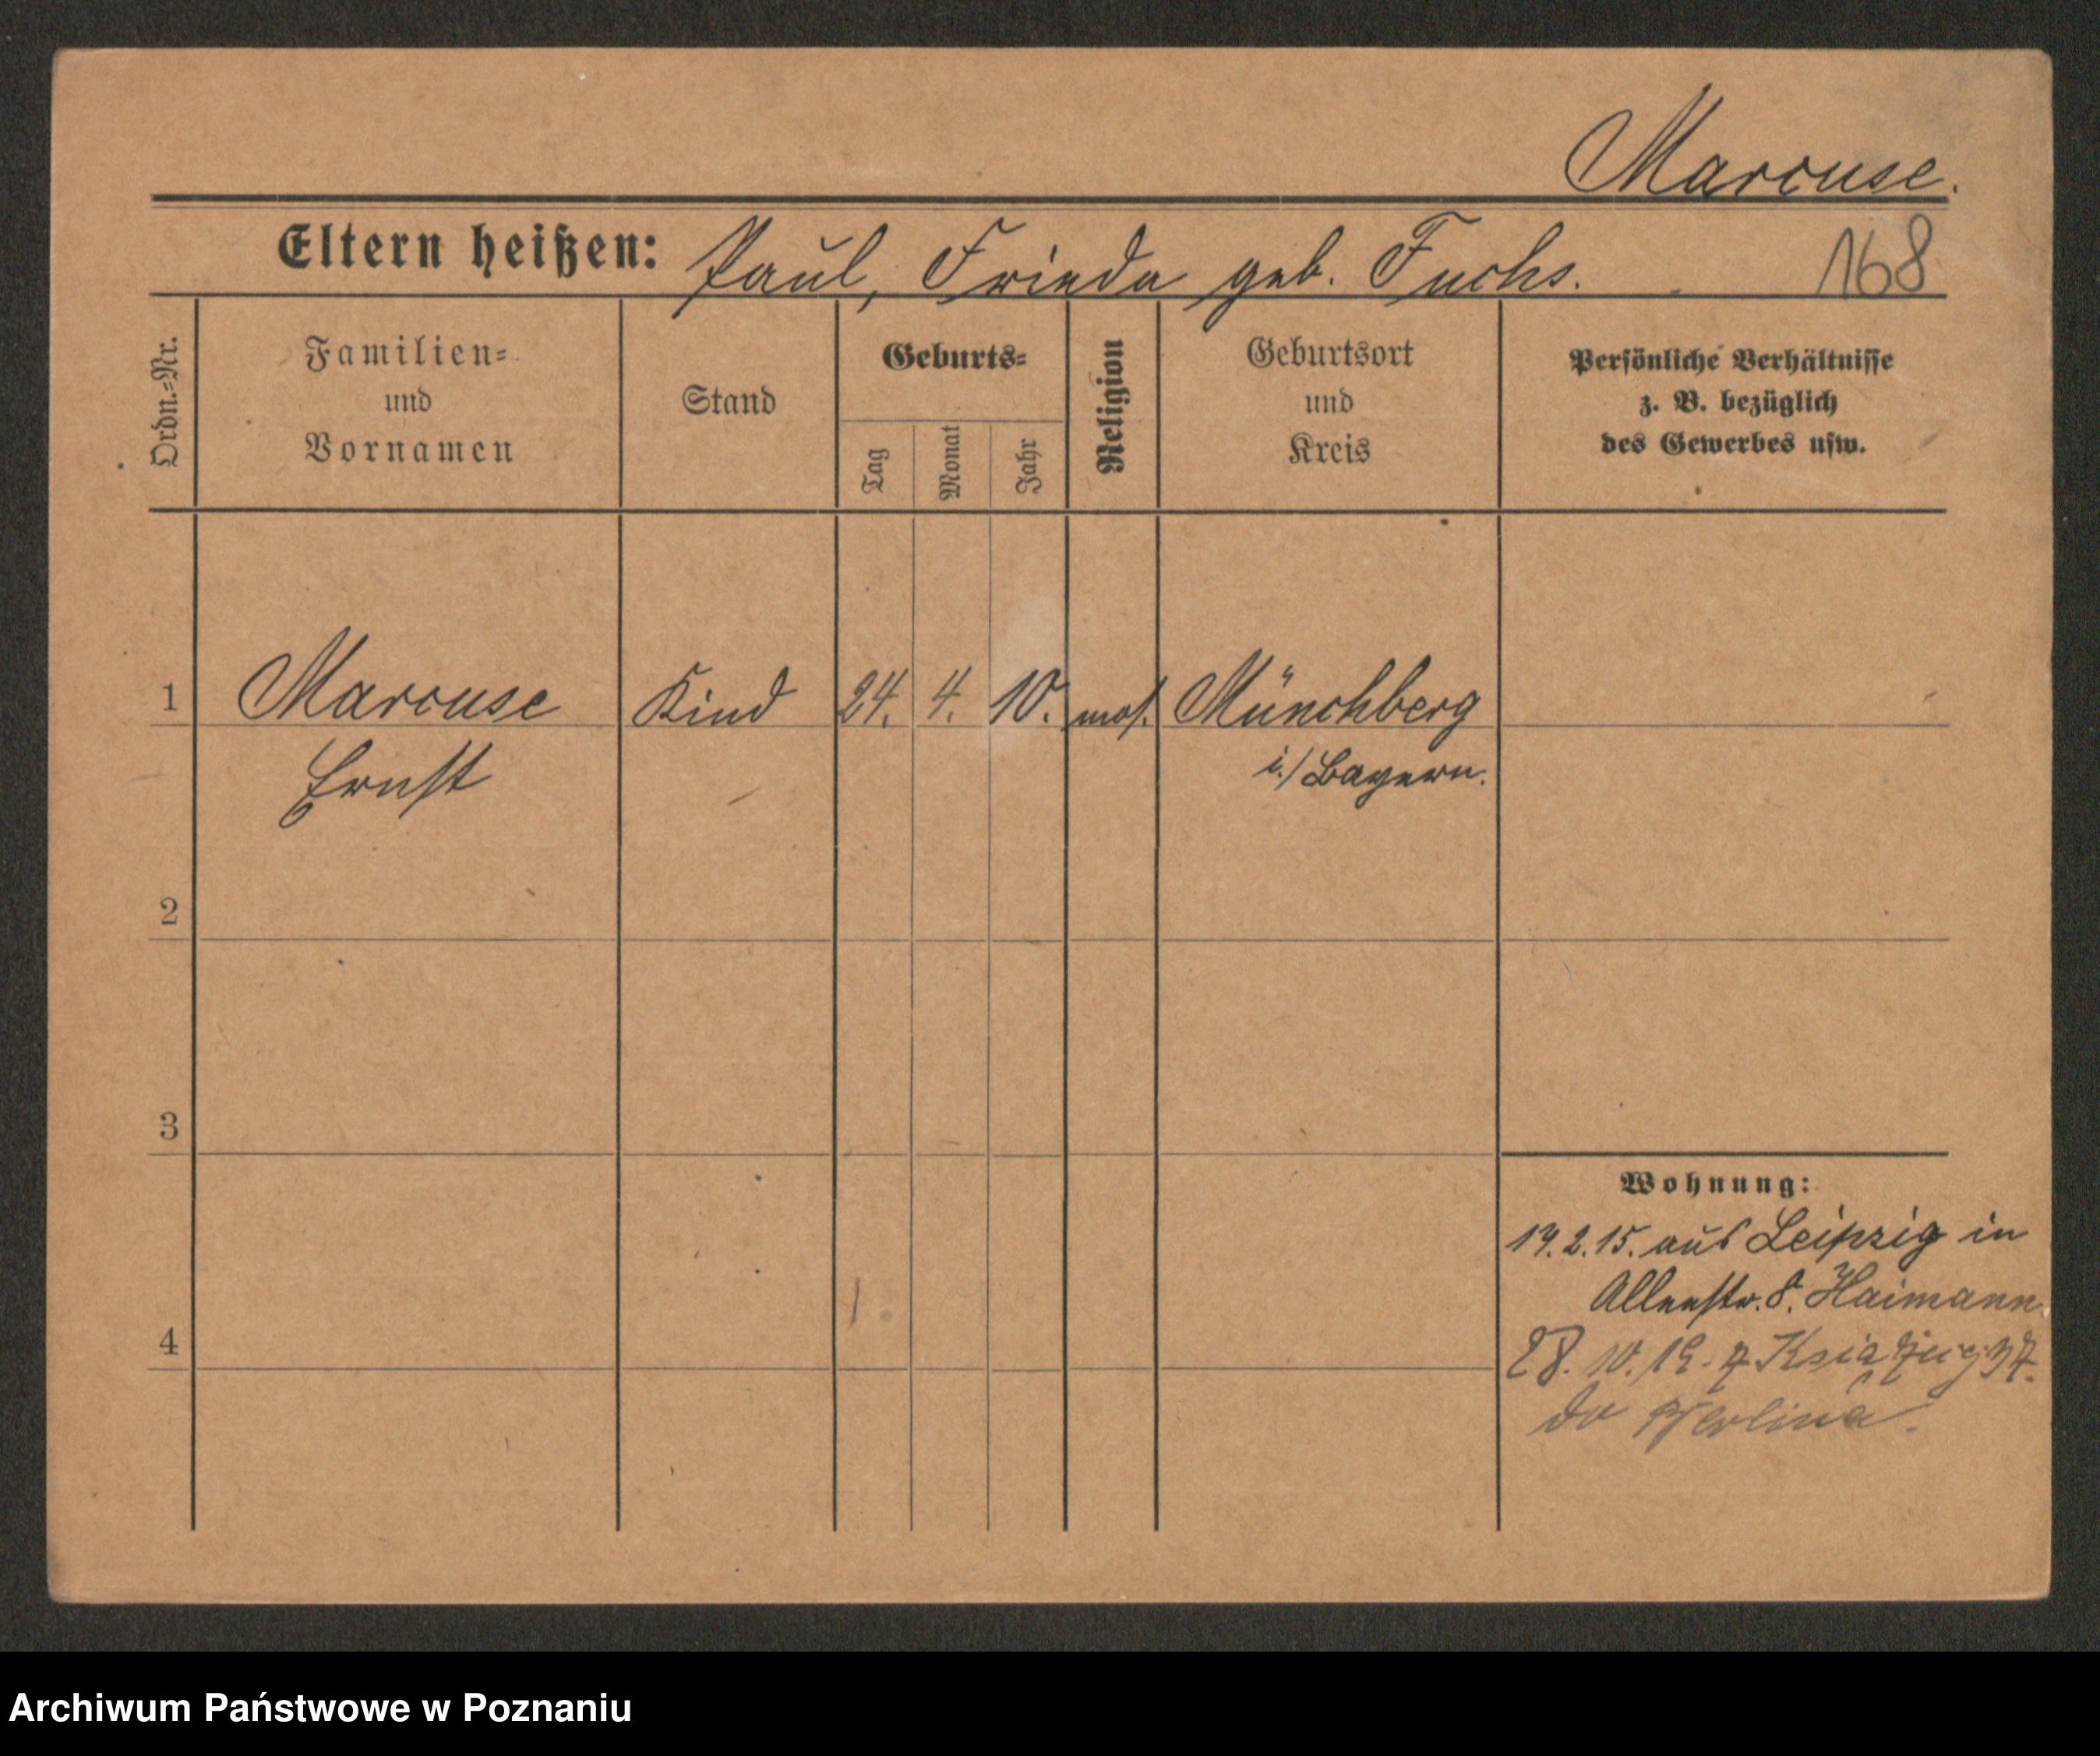 Marcuse.
Eltern heißen: Paul, Frieda geb. Fuchs.
168
Ordn.=Nr.
Familien=
und
Vornamen
Stand
Geburts=
Tag
Monat
Jahr
Religion
Geburtsort
und
Kreis
Persönliche Verhältnisse
z. B. bezüglich
des Gewerbes usw.
1 Marcuse Kind 24. 4. 10. mos. Münchberg
Ernst i./Bayern.
2
3
4
Wohnung:
14.2.15. aus Leipzig in
Allenstr. 8. Haimann
28. 10. 19. z
do Berlina.
Archiwum Państwowe w Poznaniu